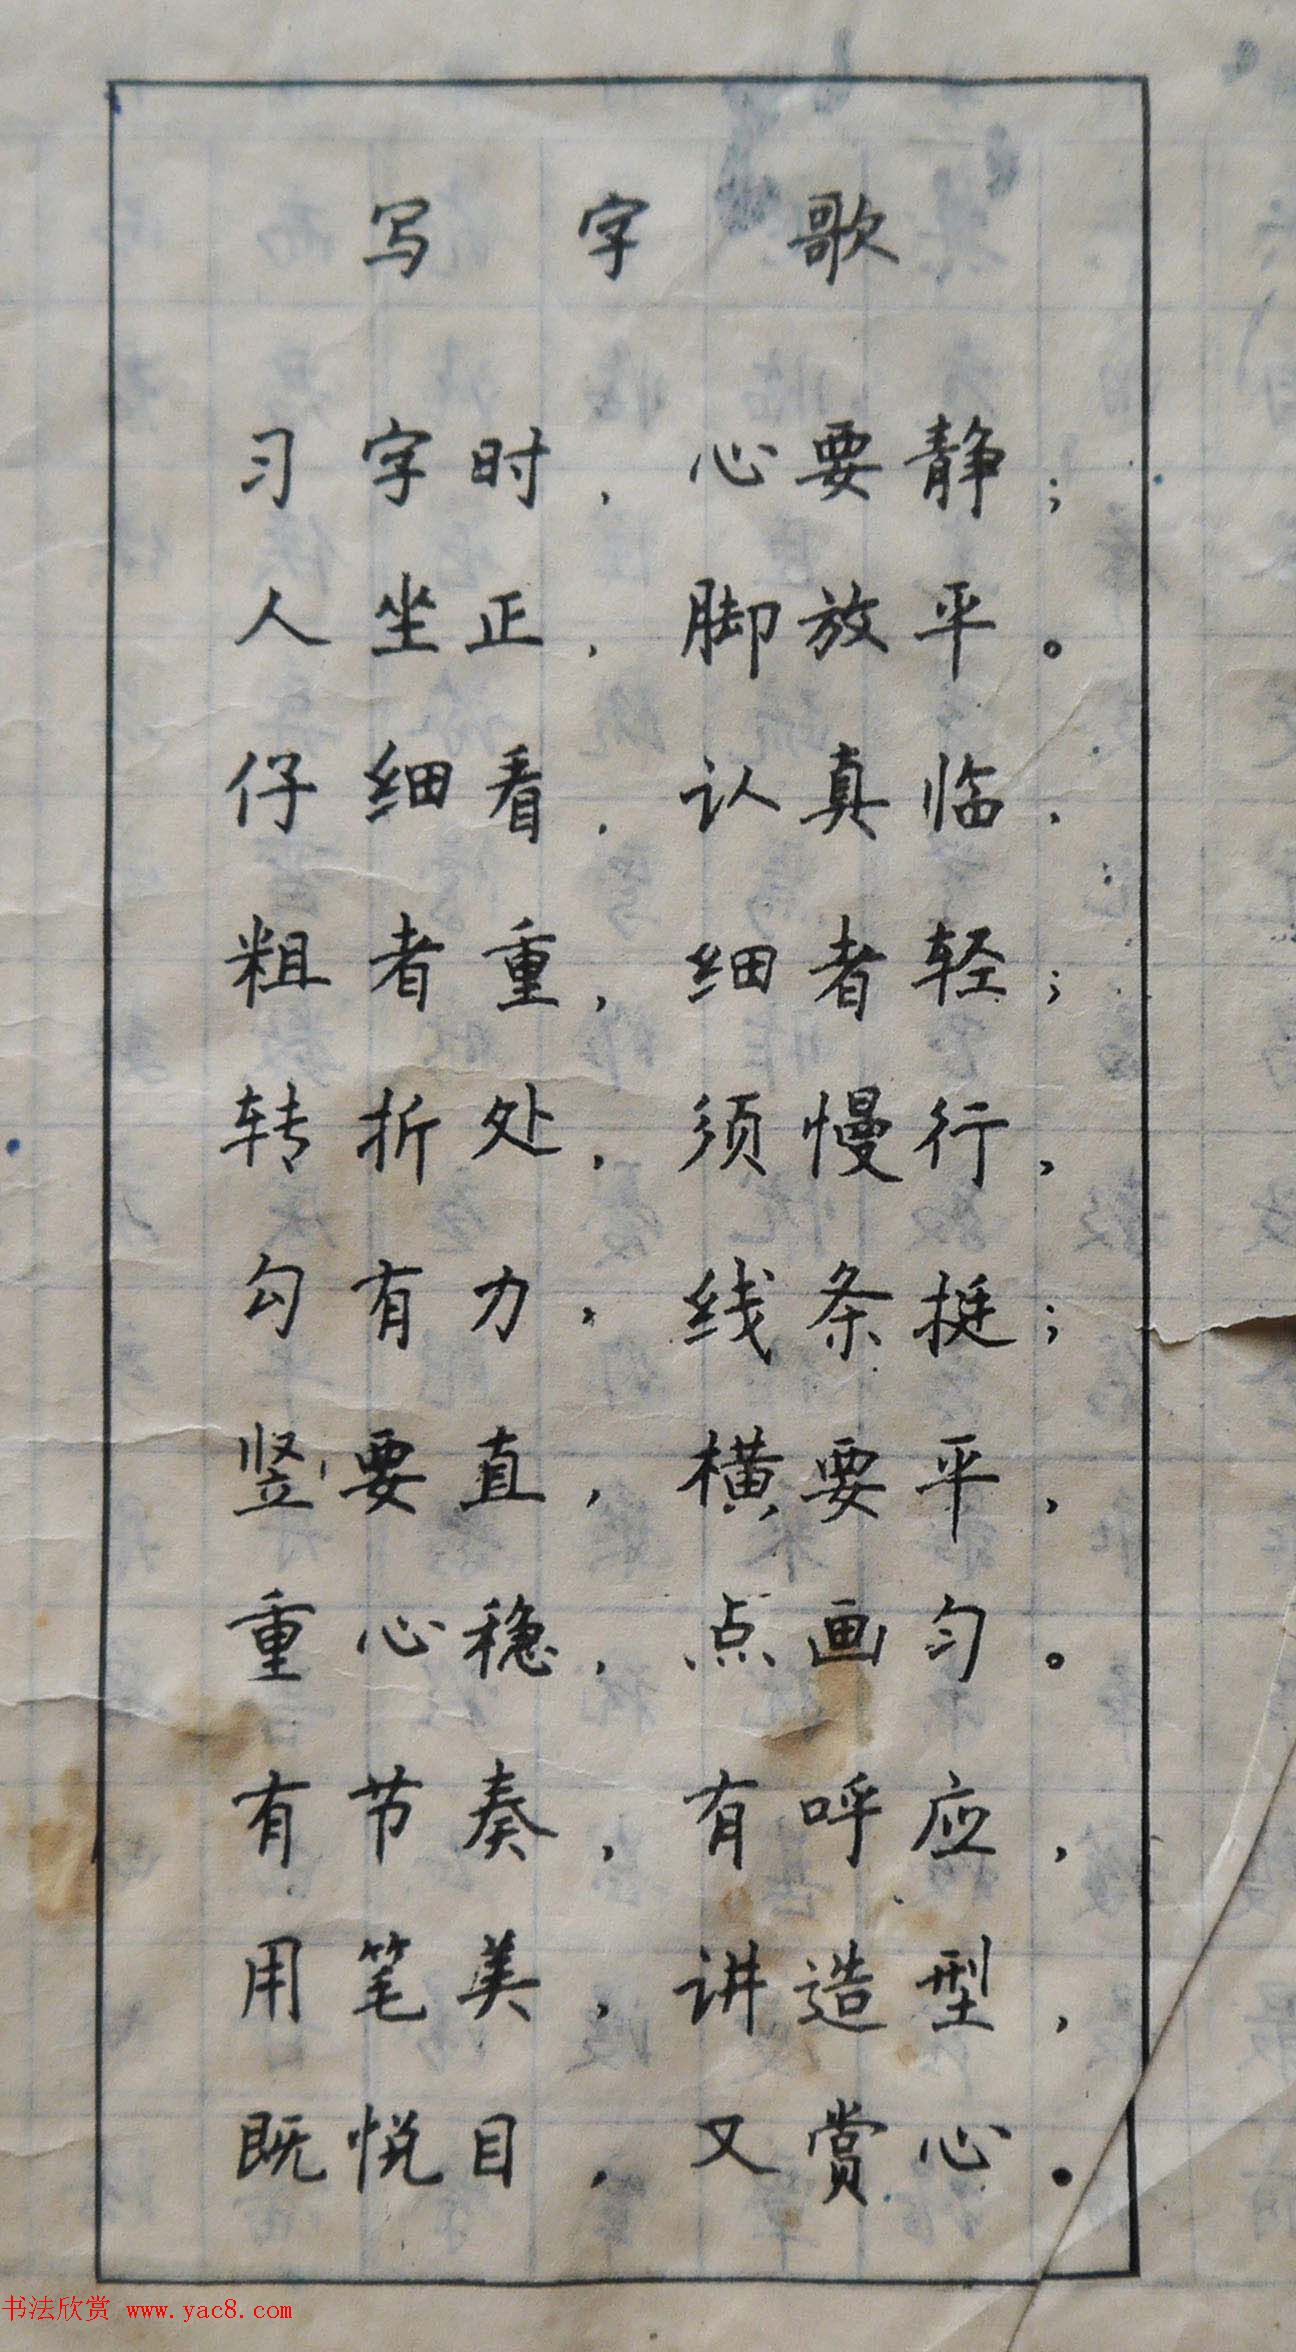 写字歌
习字时，心要静；
人坐正，脚放平。
仔细看，认真临，
粗者重，细者轻；
转折处，须慢行，
勾有力，线条挺；
竖要直，横要平，
重心稳，点画匀。
有节奏，有呼应，
用笔美，讲造型，
既悦目，又赏心。
书法欣赏 www.yac8.com